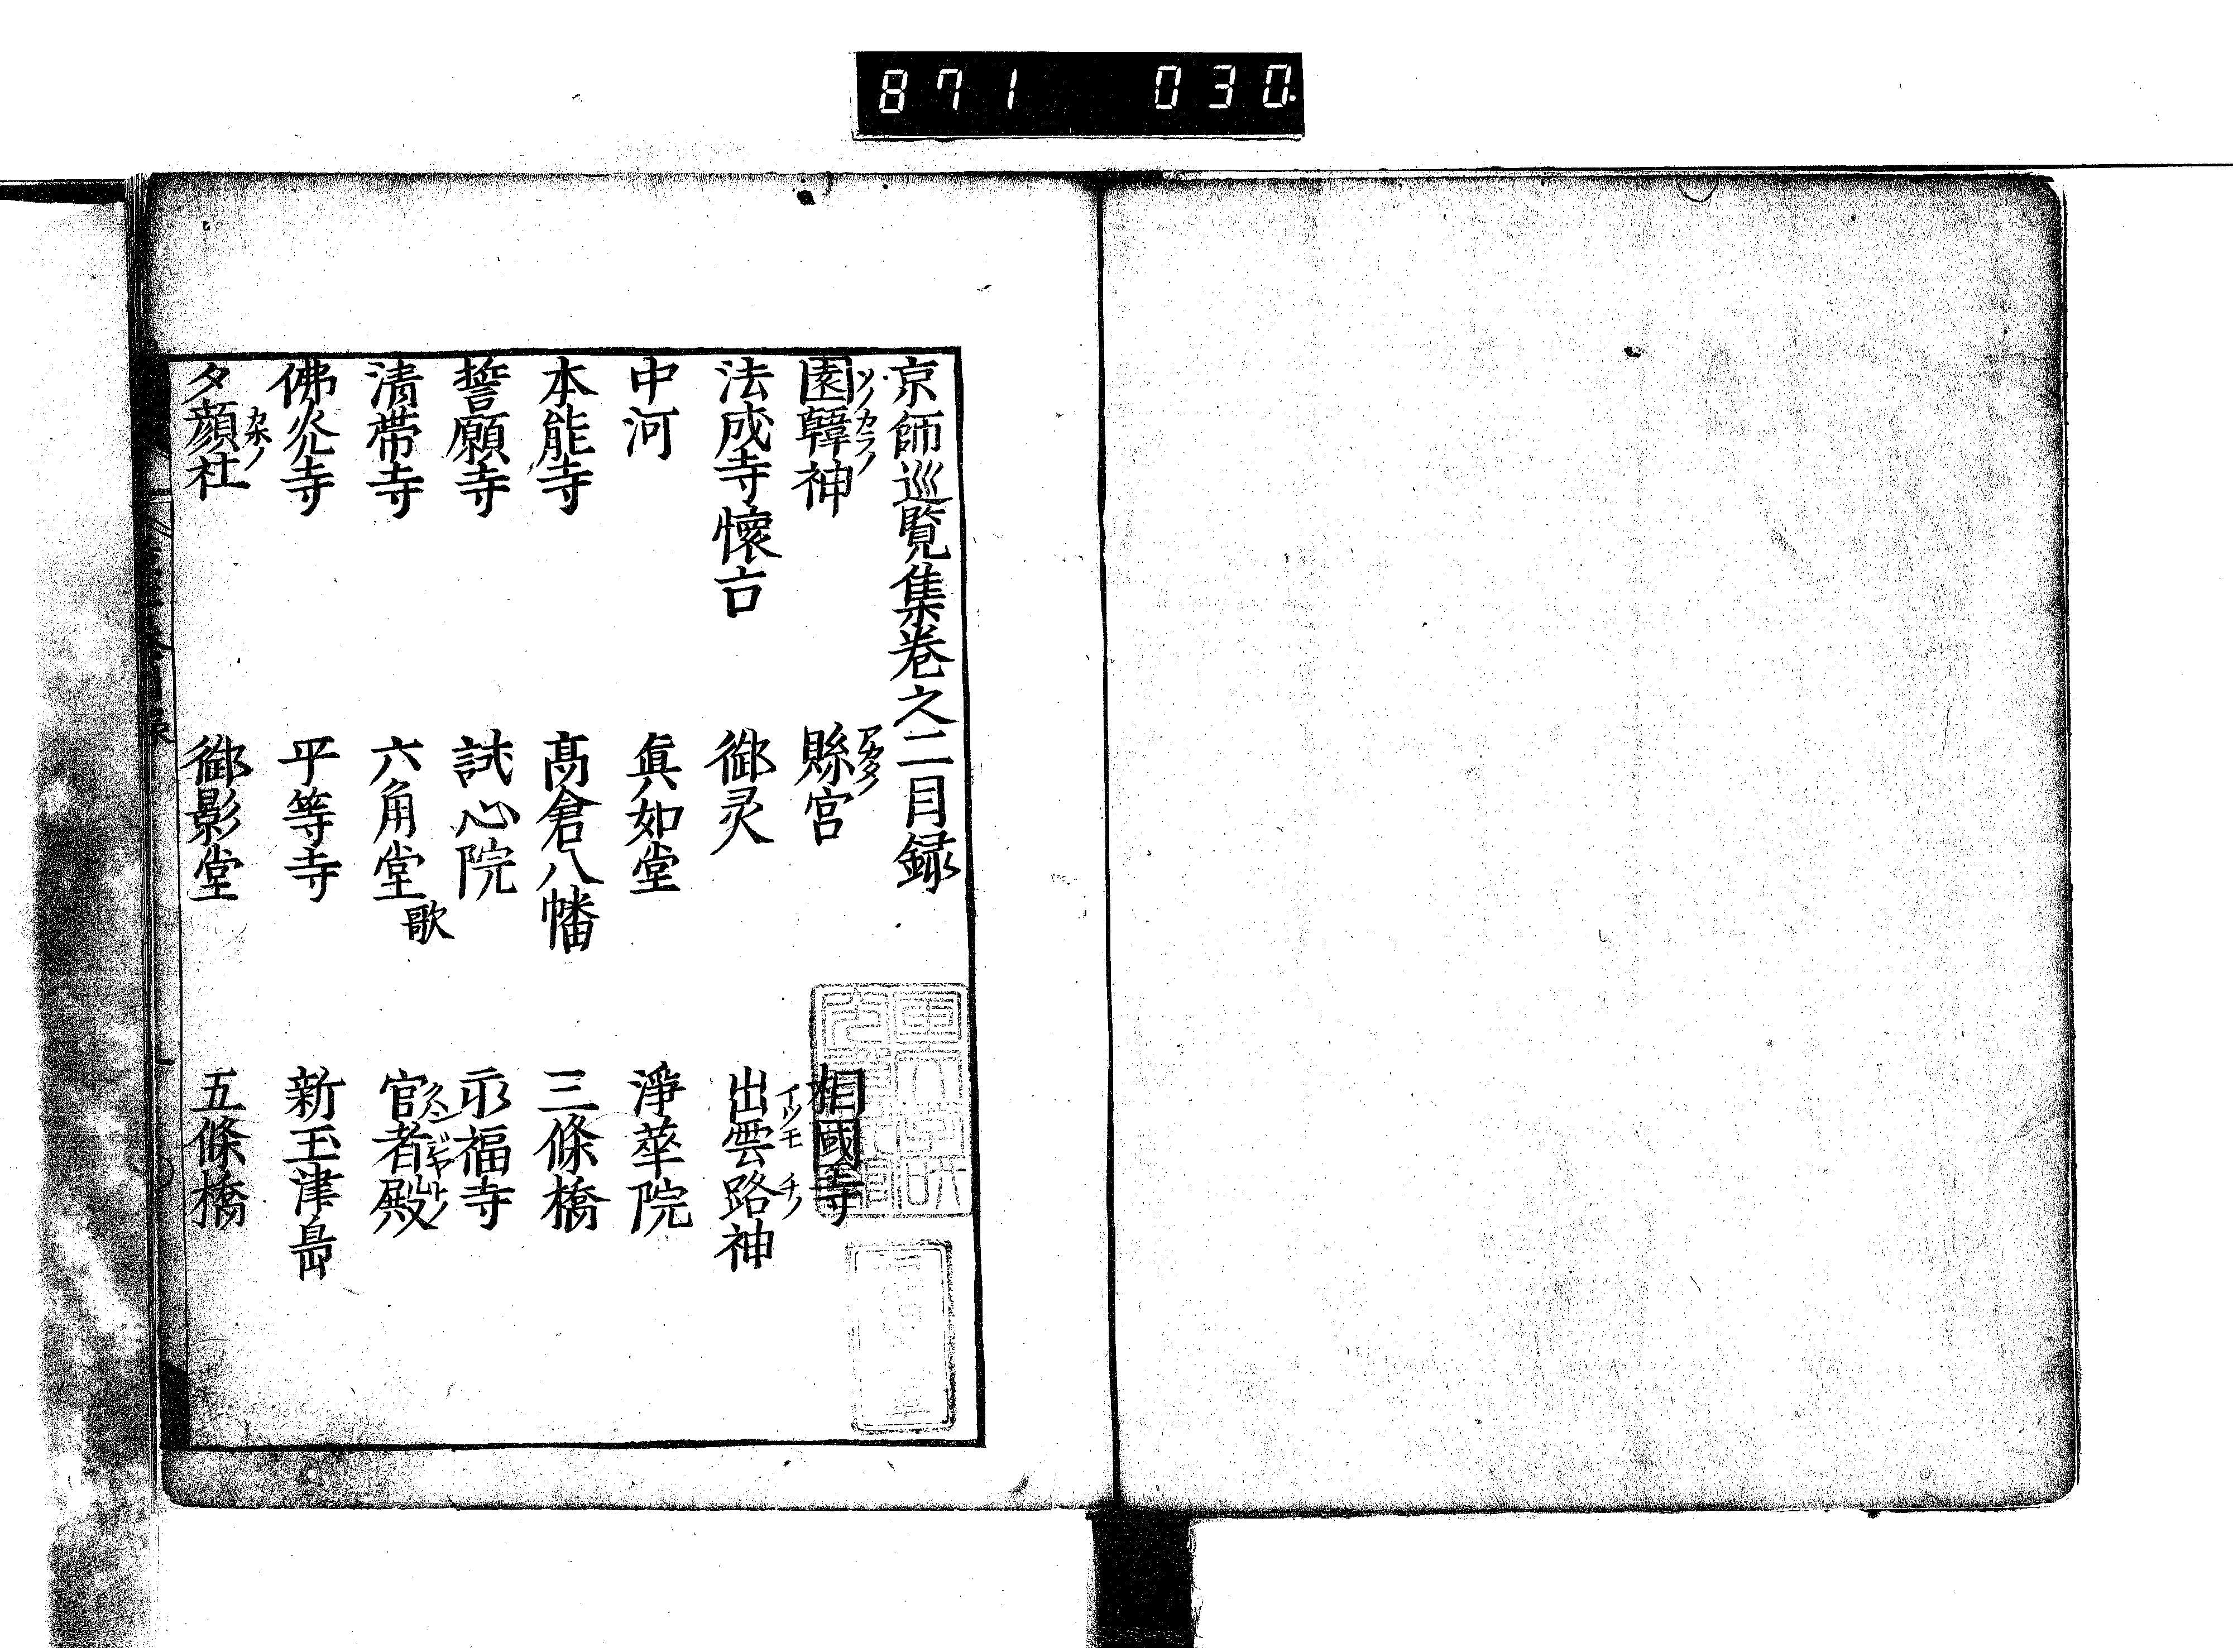 871 030
京師巡覧集巻之二目録
園韓神 縣宮 相國寺
法成寺懷古 御灵 出雲路神
中河 眞如堂 淨華院
本能寺 髙倉八幡 三條橋
誓願寺 誠心院 永福寺
清帯寺 六角堂歌 官者殿
佛光寺 平等寺 新玉津嶌
夕顔社 御影堂 五條橋